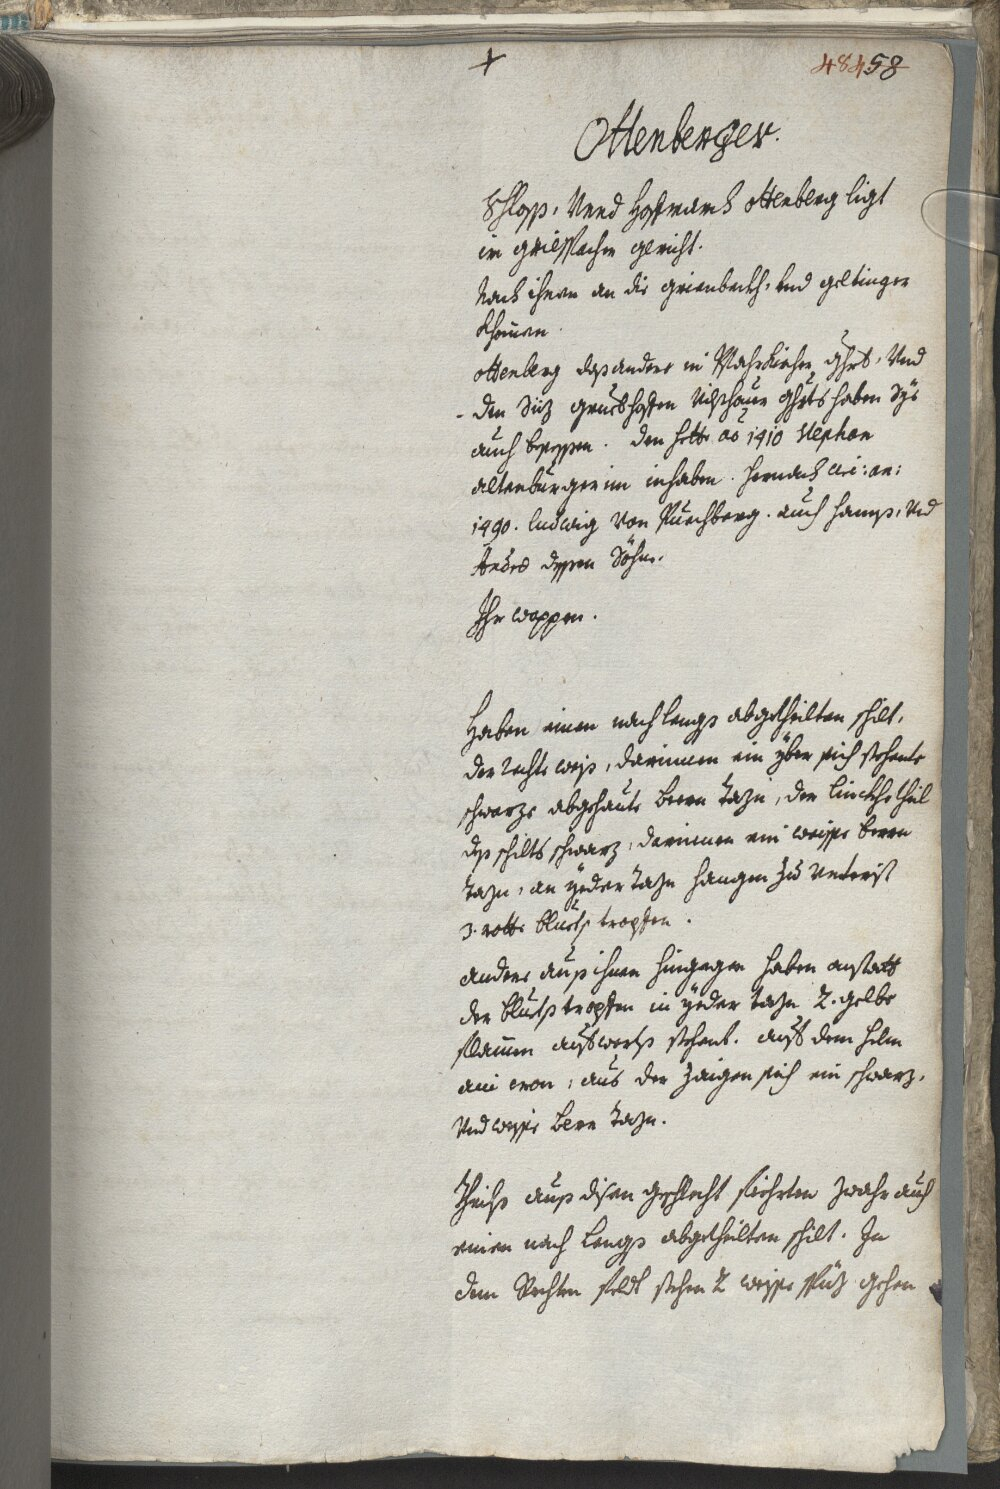 +
48458
Ottenberger.
Schloss, Unnd Hoffmarch Ottenberg ligt
in Griessbacher gericht.
Nach ihnen an die grienbeckh, und goltinger
khomen.
Ottenberg dass ander in Pfahrkircher ghrt, Und
- den Siz Vilsshouer ghrts haben Sye
auch besessen. den hette ao 1410 Stephan
altenburger im inhaben. hernach
1490. ludwig von Puechberg. auch hannss, Und
dessen Söhn.
Ihr wappen.
Haben einen nach lengs abgetheilten schilt,
der rechte weiss, darinnen ein yber sich stehente
schwarze abgehaute beern Tazn, der linckhe theil
dess schilts schwarz, darinnen ein weisse beern
tazn, an yeder tazn hangen zu unterist
3. rotte bluetss tropffen.
andere auss ihnen hingegen haben anstatt
der bluetss tropffen in yeder tazn 2. gelbe
flamen ausswerts stehent. auff dem helm
ain cron, aus der zaigen sich ein schwarz,
Und weisse beern tazn.
Theilss auss disen geschlecht fiehrten zwahr auch
einen nach lengs abgetheilten schilt. In
dem Rechten feldt stehen 2 weisse spiz gehen